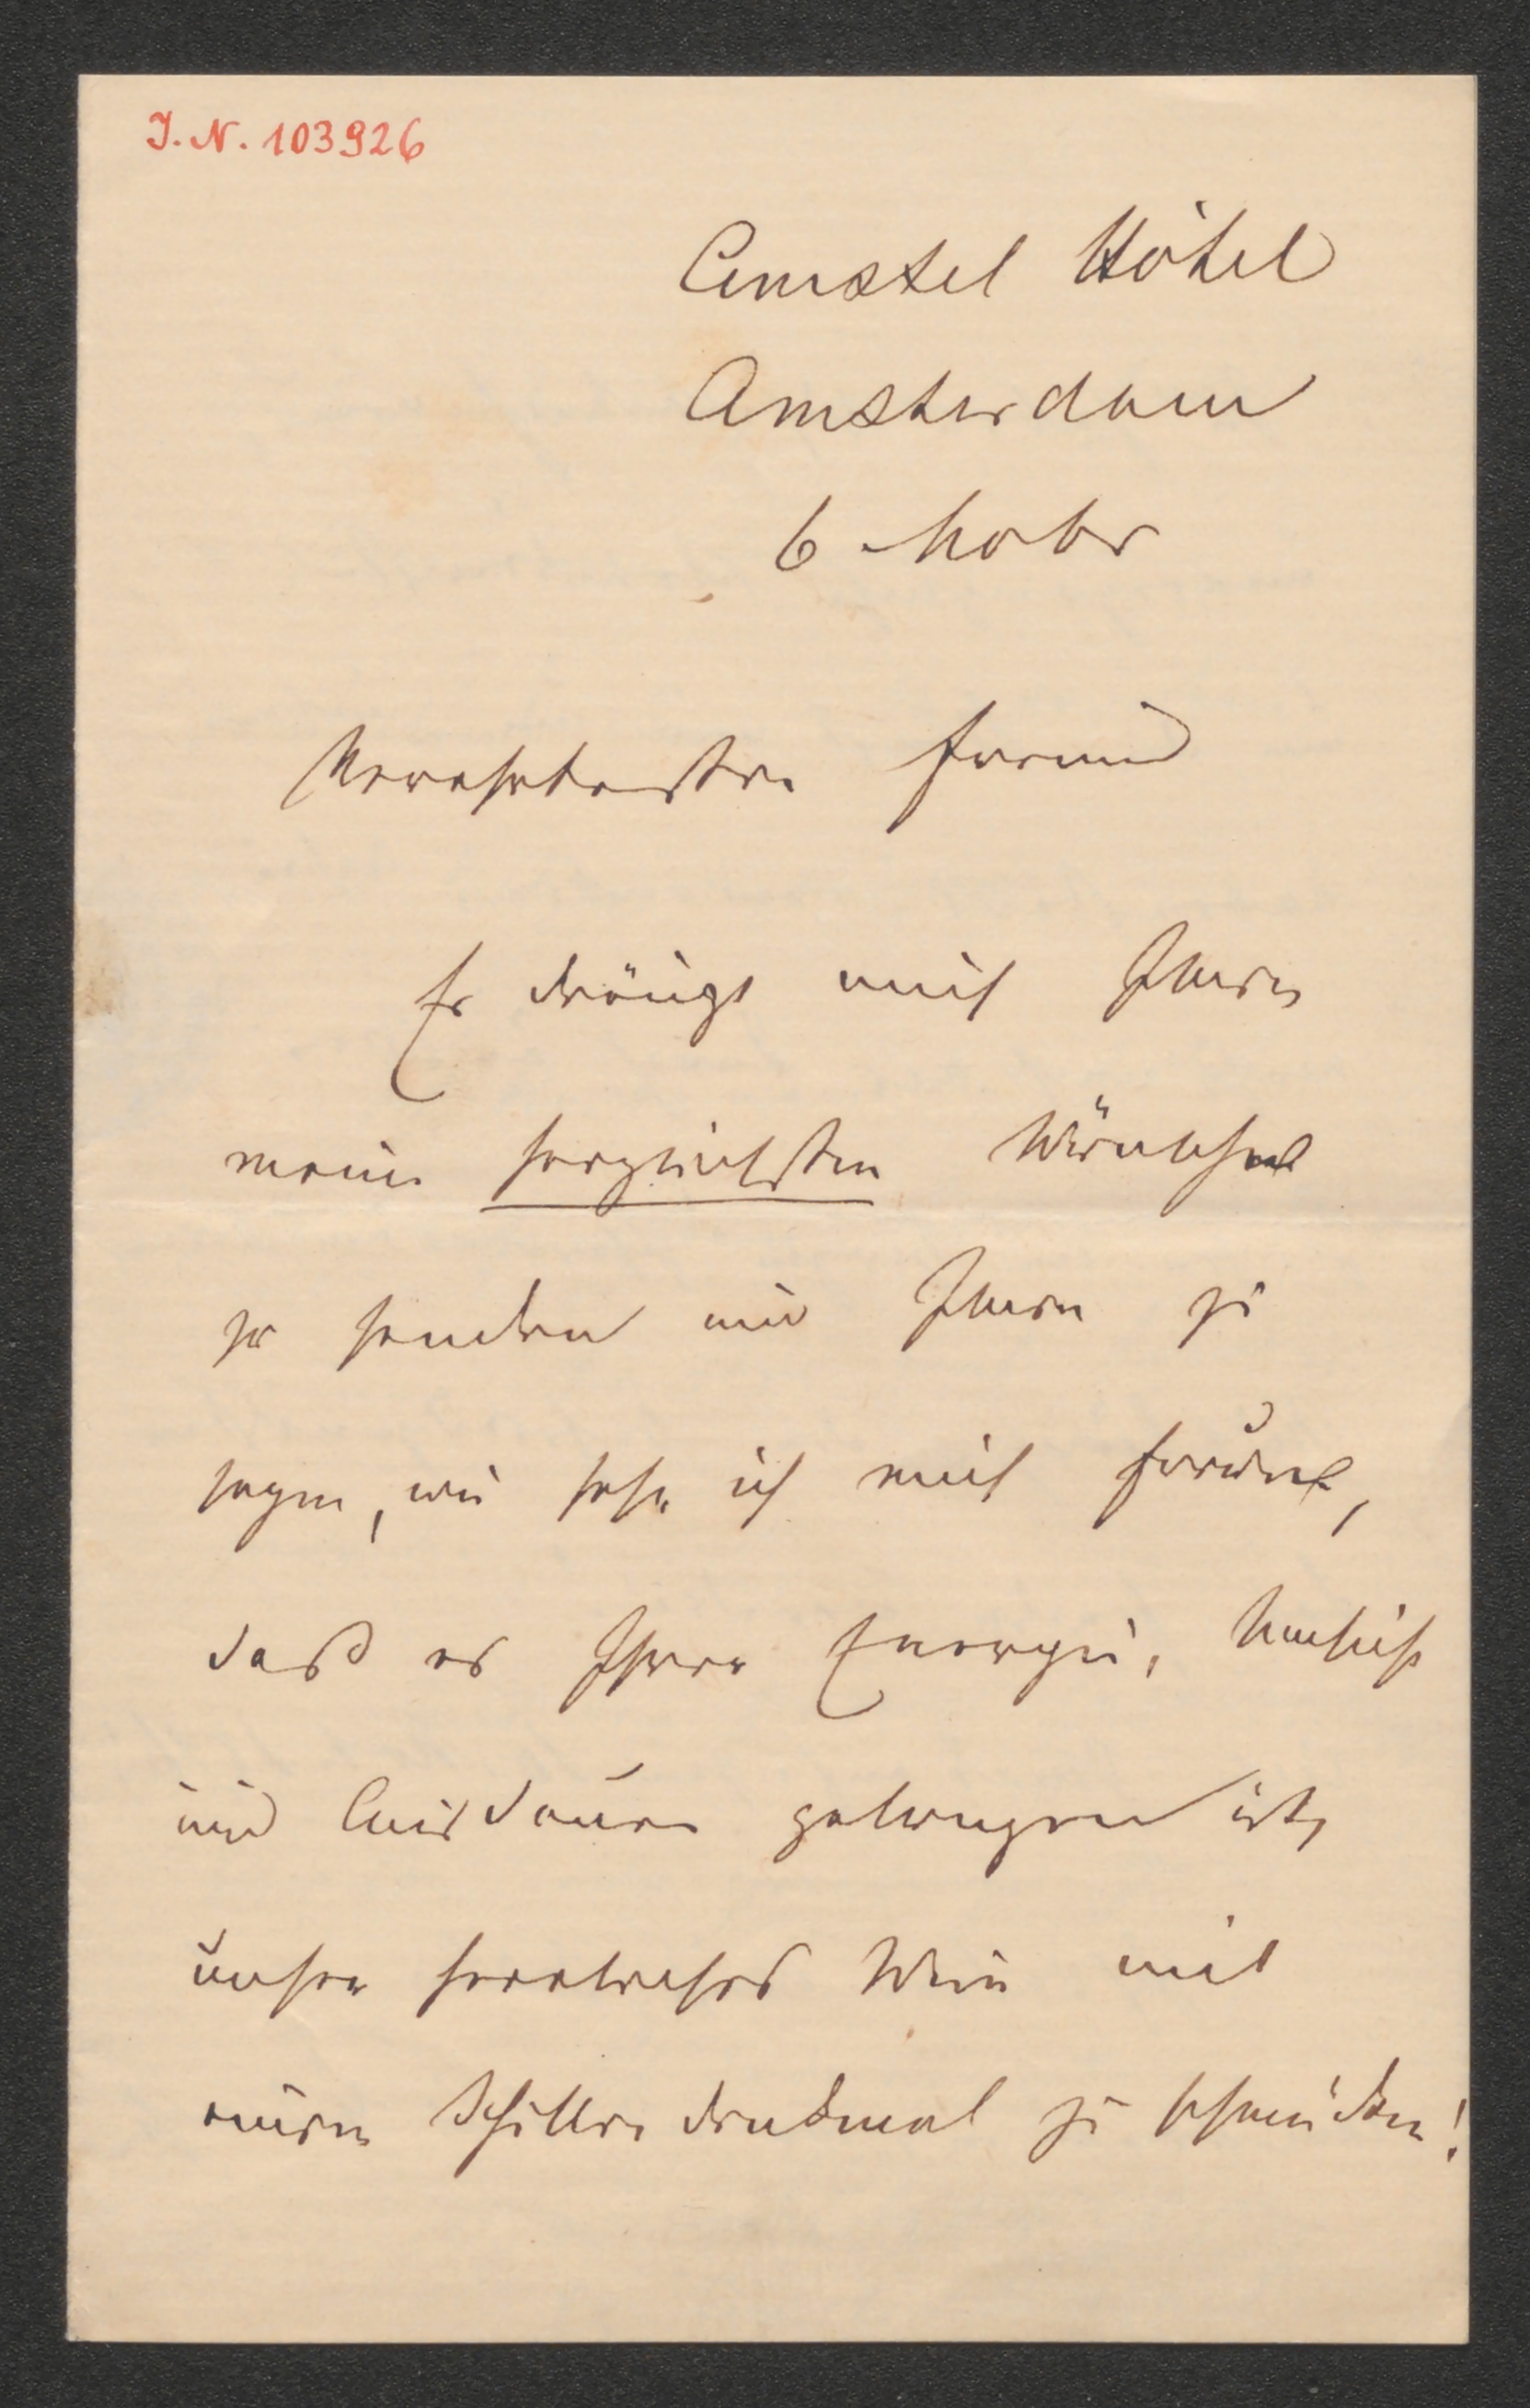 J. N. 103926
Amstel Hôtel
Amsterdam
6 Novbr
Verehrtester Freund
Es drängt mich Ihnen
meine herzlichsten Wünsche
zu senden und Ihnen zu
sagen, wie sehr ich mich freue,
daß es Ihrer Energie, Umsicht
und Ausdauer gelungen ist,
unser herrliches Wien mit
einem Schillerdenkmal zu schmücken!